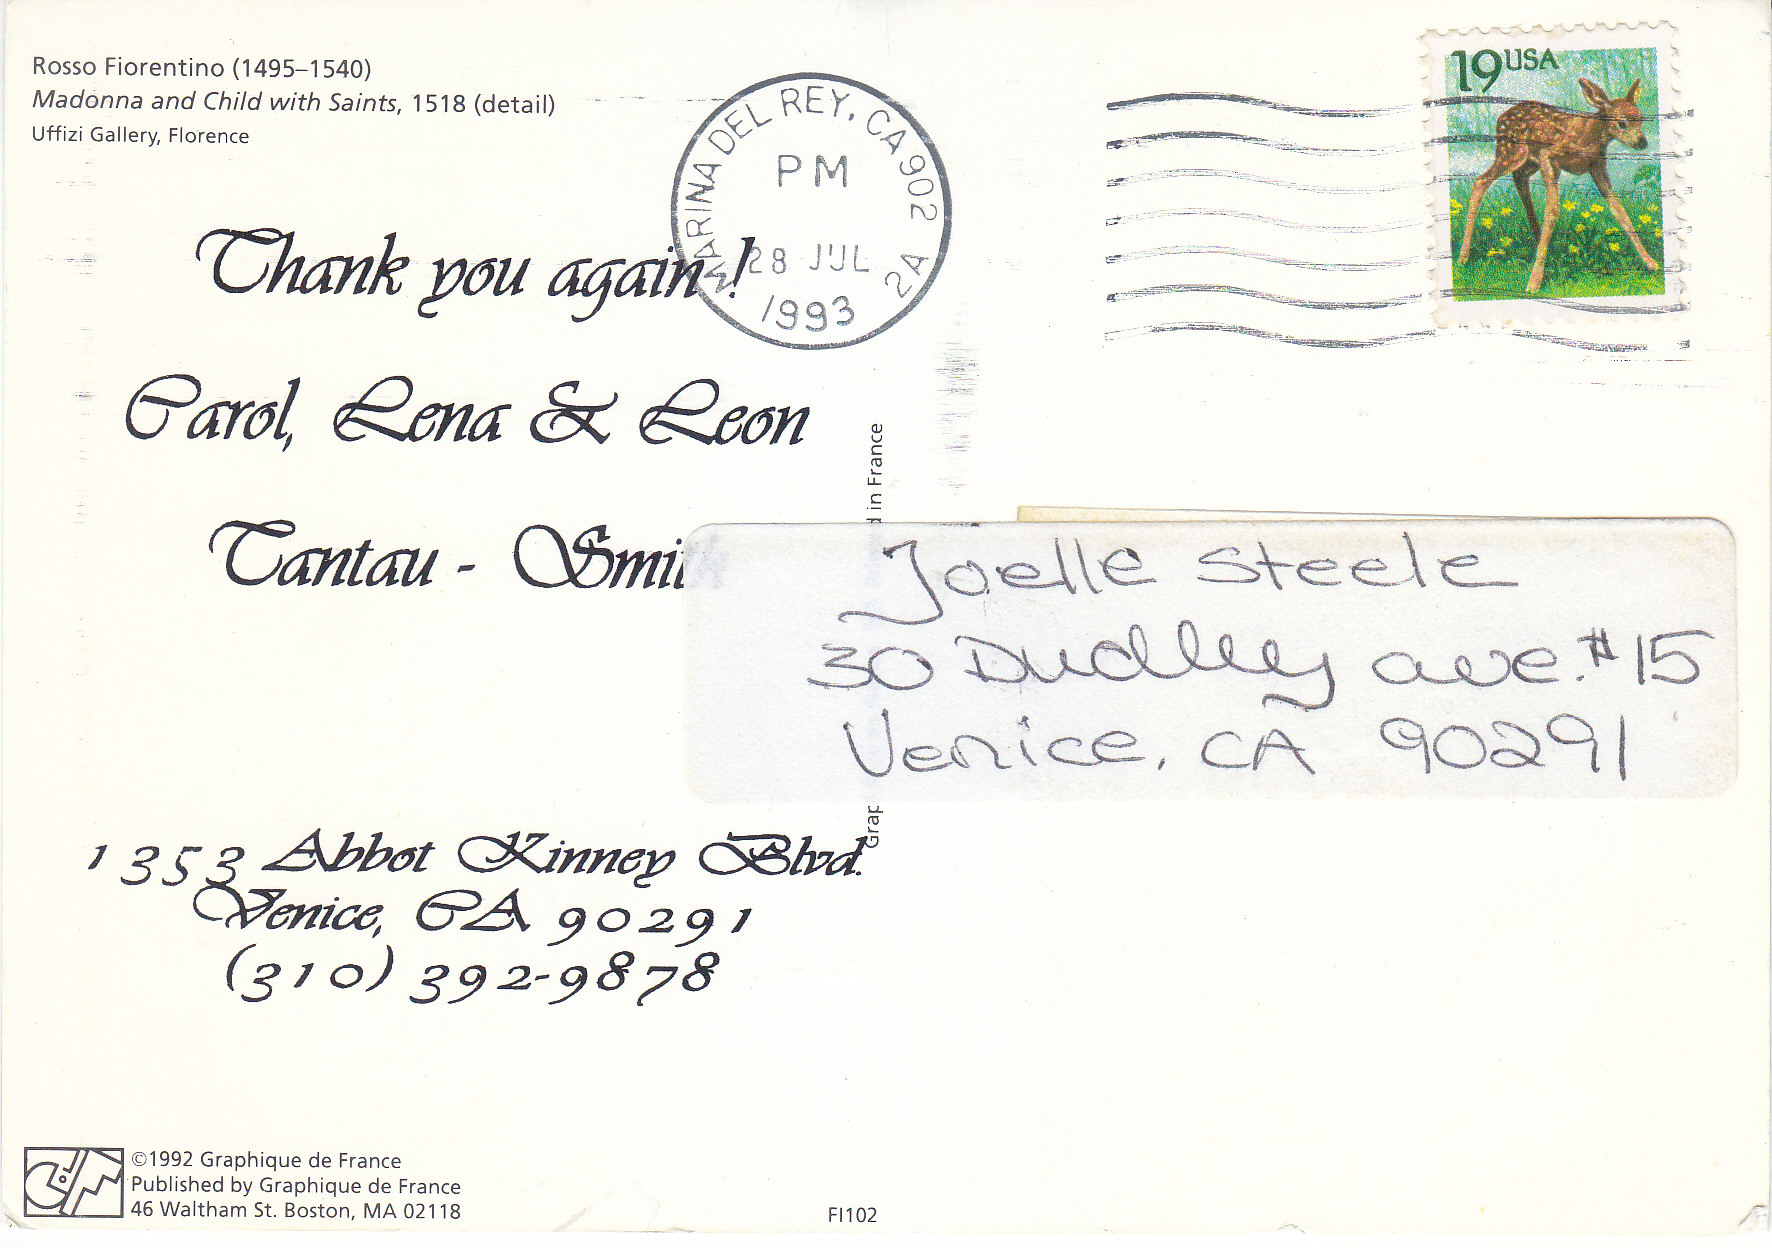 Rosso Fiorentino (1495–1540)
Madonna and Child with Saints, 1518 (detail)
Uffizi Gallery, Florence
MARINA DEL REY, CA 902 2A
PM
28 JUL
1993
19 USA
Thank you again!
Carol, Lena & Leon
Tantau - Smi
d in France
Grap
Joelle Steele
30 Dudley ave. #15
Venice, CA 90291
1353 Abbot Kinney Blvd.
Venice, CA 90291
(310) 392-9878
©1992 Graphique de France
Published by Graphique de France
46 Waltham St. Boston, MA 02118
FI102